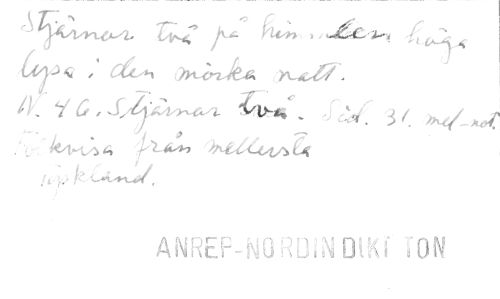 Stjärnor två på himmelen höga
lysa i den mörka natt.
N. 46. Stjärnor två. Sid. 31. mel-not.
Folkvisa från mellersta
Tyskland.
ANREP-NORDIN DIKT TON